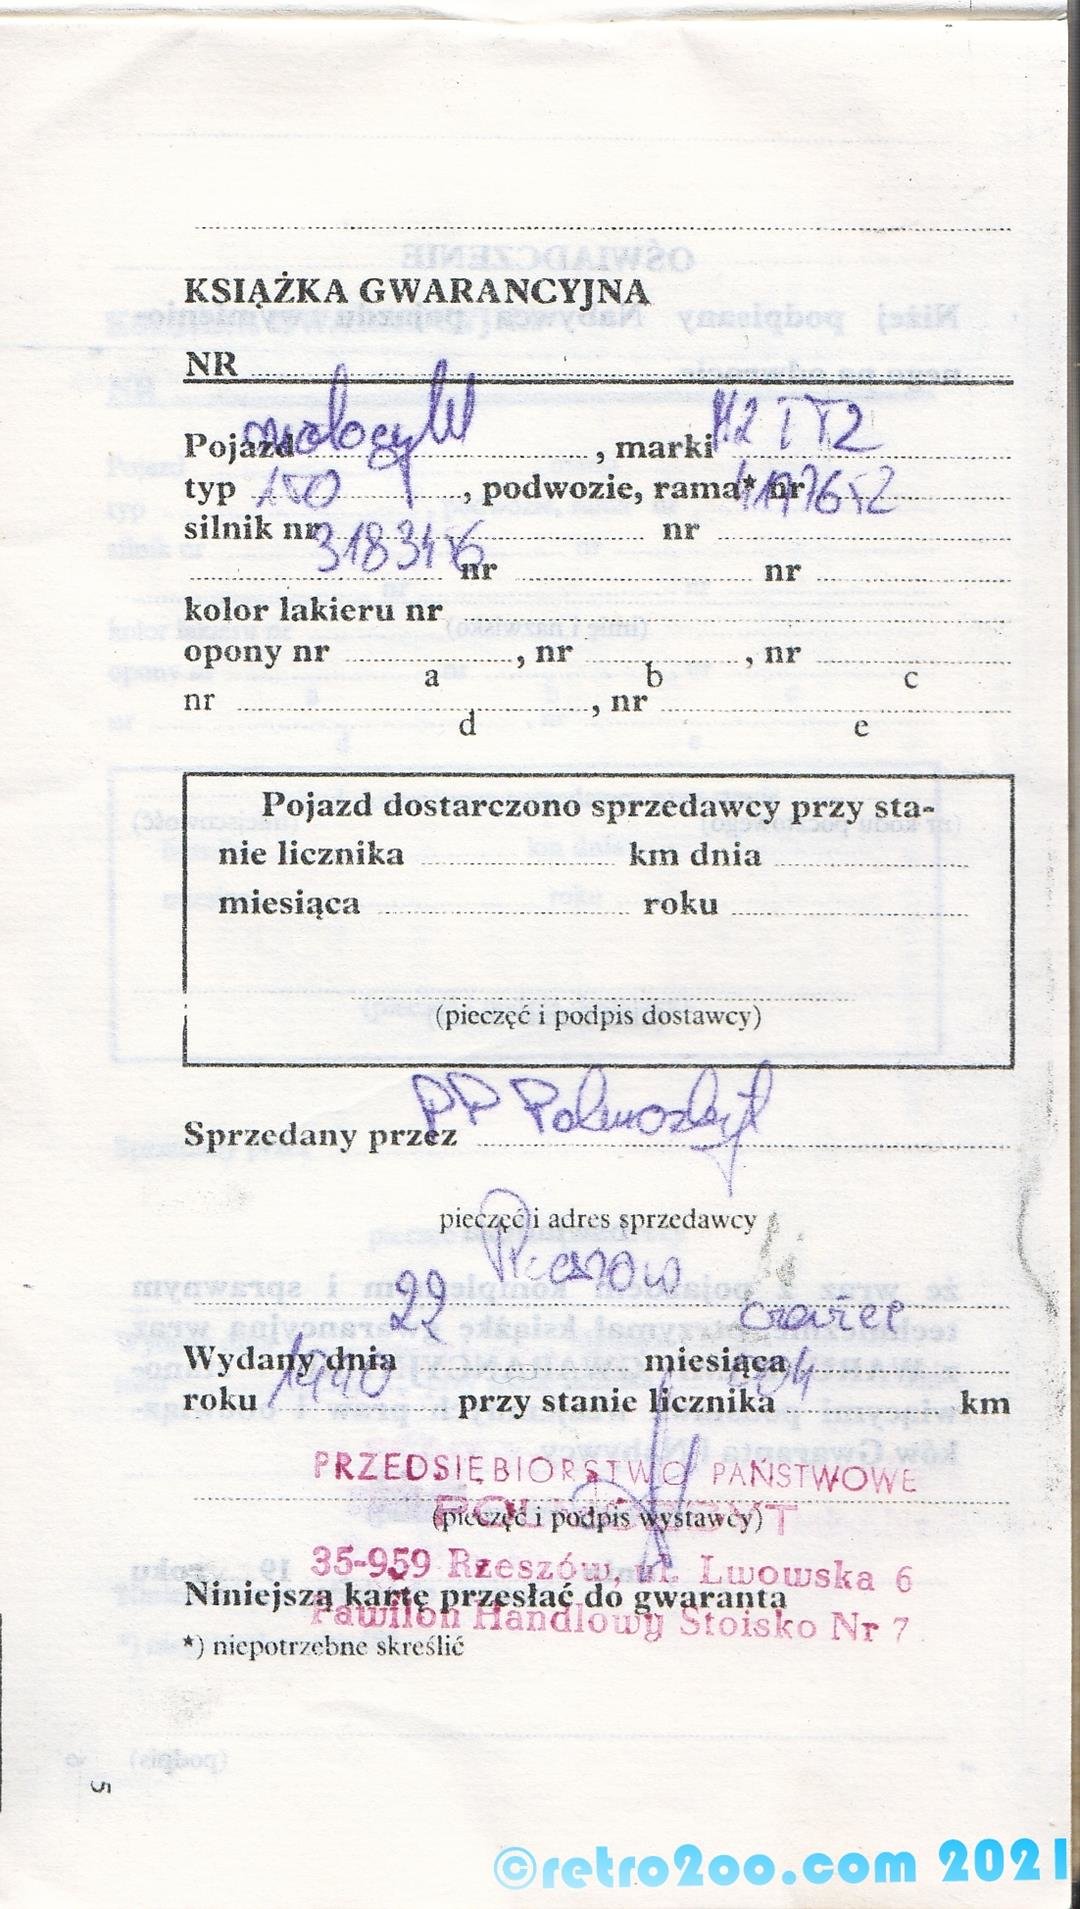 KSIĄŻKA GWARANCYJNA
NR
Pojazd motocykl, marki M2 TTZ
typ 150, podwozie, rama* nr
silnik nr 318346 nr
nr nr
kolor lakieru nr
opony nr , nr , nr
a b c
nr , nr
d e
Pojazd dostarczono sprzedawcy przy sta-
nie licznika km dnia
miesiąca roku
(pieczęć i podpis dostawcy)
Sprzedany przez PP Polmozbyt
pieczęć i adres sprzedawcy
Rzeszów
Wydany dnia 22 miesiąca czerwiec
roku 1990 przy stanie licznika km
PRZEDSIĘBIORSTWO PAŃSTWOWE
POLMOZBYT
(pieczęć i podpis wystawcy)
35-959 Rzeszów, ul. Lwowska 6
Niniejszą kartę przesłać do gwaranta
Pawilon Handlowy Stoisko Nr 7
*) niepotrzebne skreślić
5
©retro2oo.com 2021